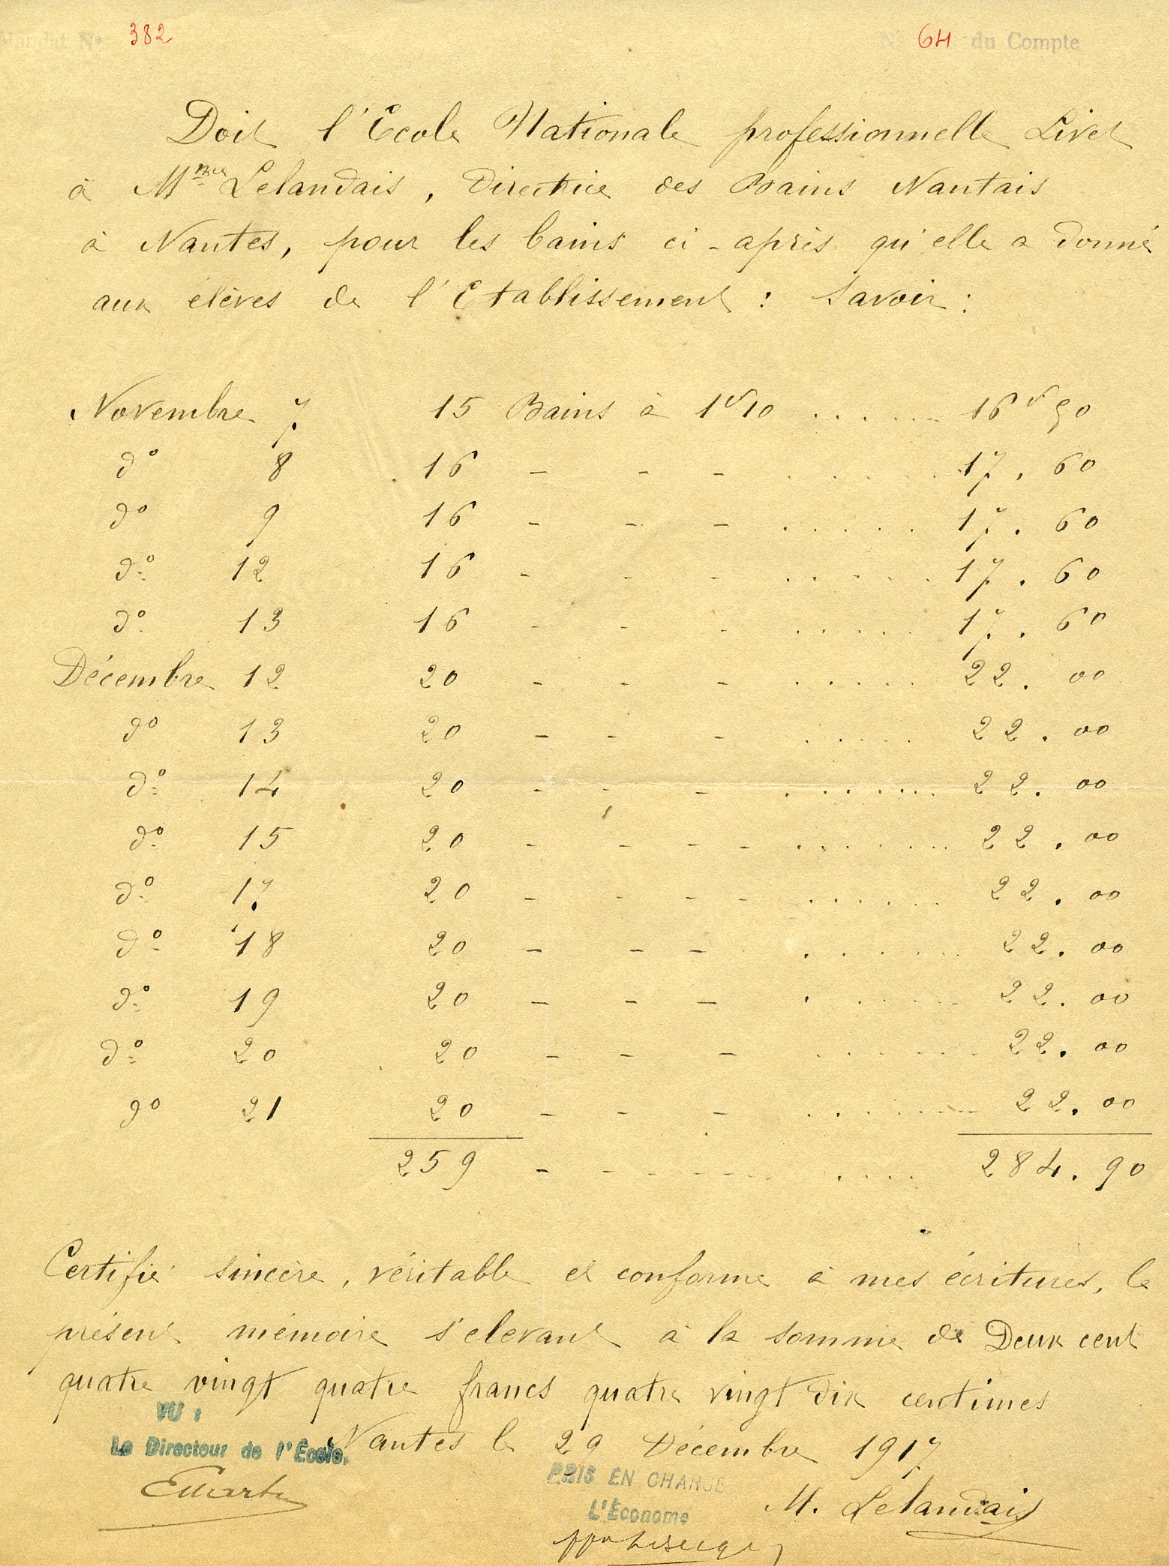 Mandat N° 382
N° 64 du Compte
Doit l'Ecole Nationale professionnelle Livet
à Mme Lelandais, Directrice des Bains Nantais
à Nantes, pour les bains ci-après qu'elle a donné
aux élèves de l'Etablissement : Savoir :
Novembre 7 15 Bains à 1f10 ...... 16f50
d° 8 16 - - - ...... 17.60
d° 9 16 - - - ...... 17.60
d° 12 16 - - - ...... 17.60
d° 13 16 - - - ...... 17.60
Décembre 12 20 - - - ...... 22.00
d° 13 20 - - - ...... 22.00
d° 14 20 - - - ...... 22.00
d° 15 20 - - - - ...... 22.00
d° 17 20 - - - - ...... 22.00
d° 18 20 - - - ...... 22.00
d° 19 20 - - - ...... 22.00
d° 20 20 - - - ...... 22.00
d° 21 20 - - - ...... 22.00
259 - - ...... 284.90
Certifié sincère, véritable et conforme à mes écritures, le
présent mémoire s'elevant à la somme de Deux cent
quatre vingt quatre francs quatre vingt dix centimes
VU :
Le Directeur de l'École,
Nantes le 29 Décembre 1917
PRIS EN CHARGE
L'Économe
M. Lelandais